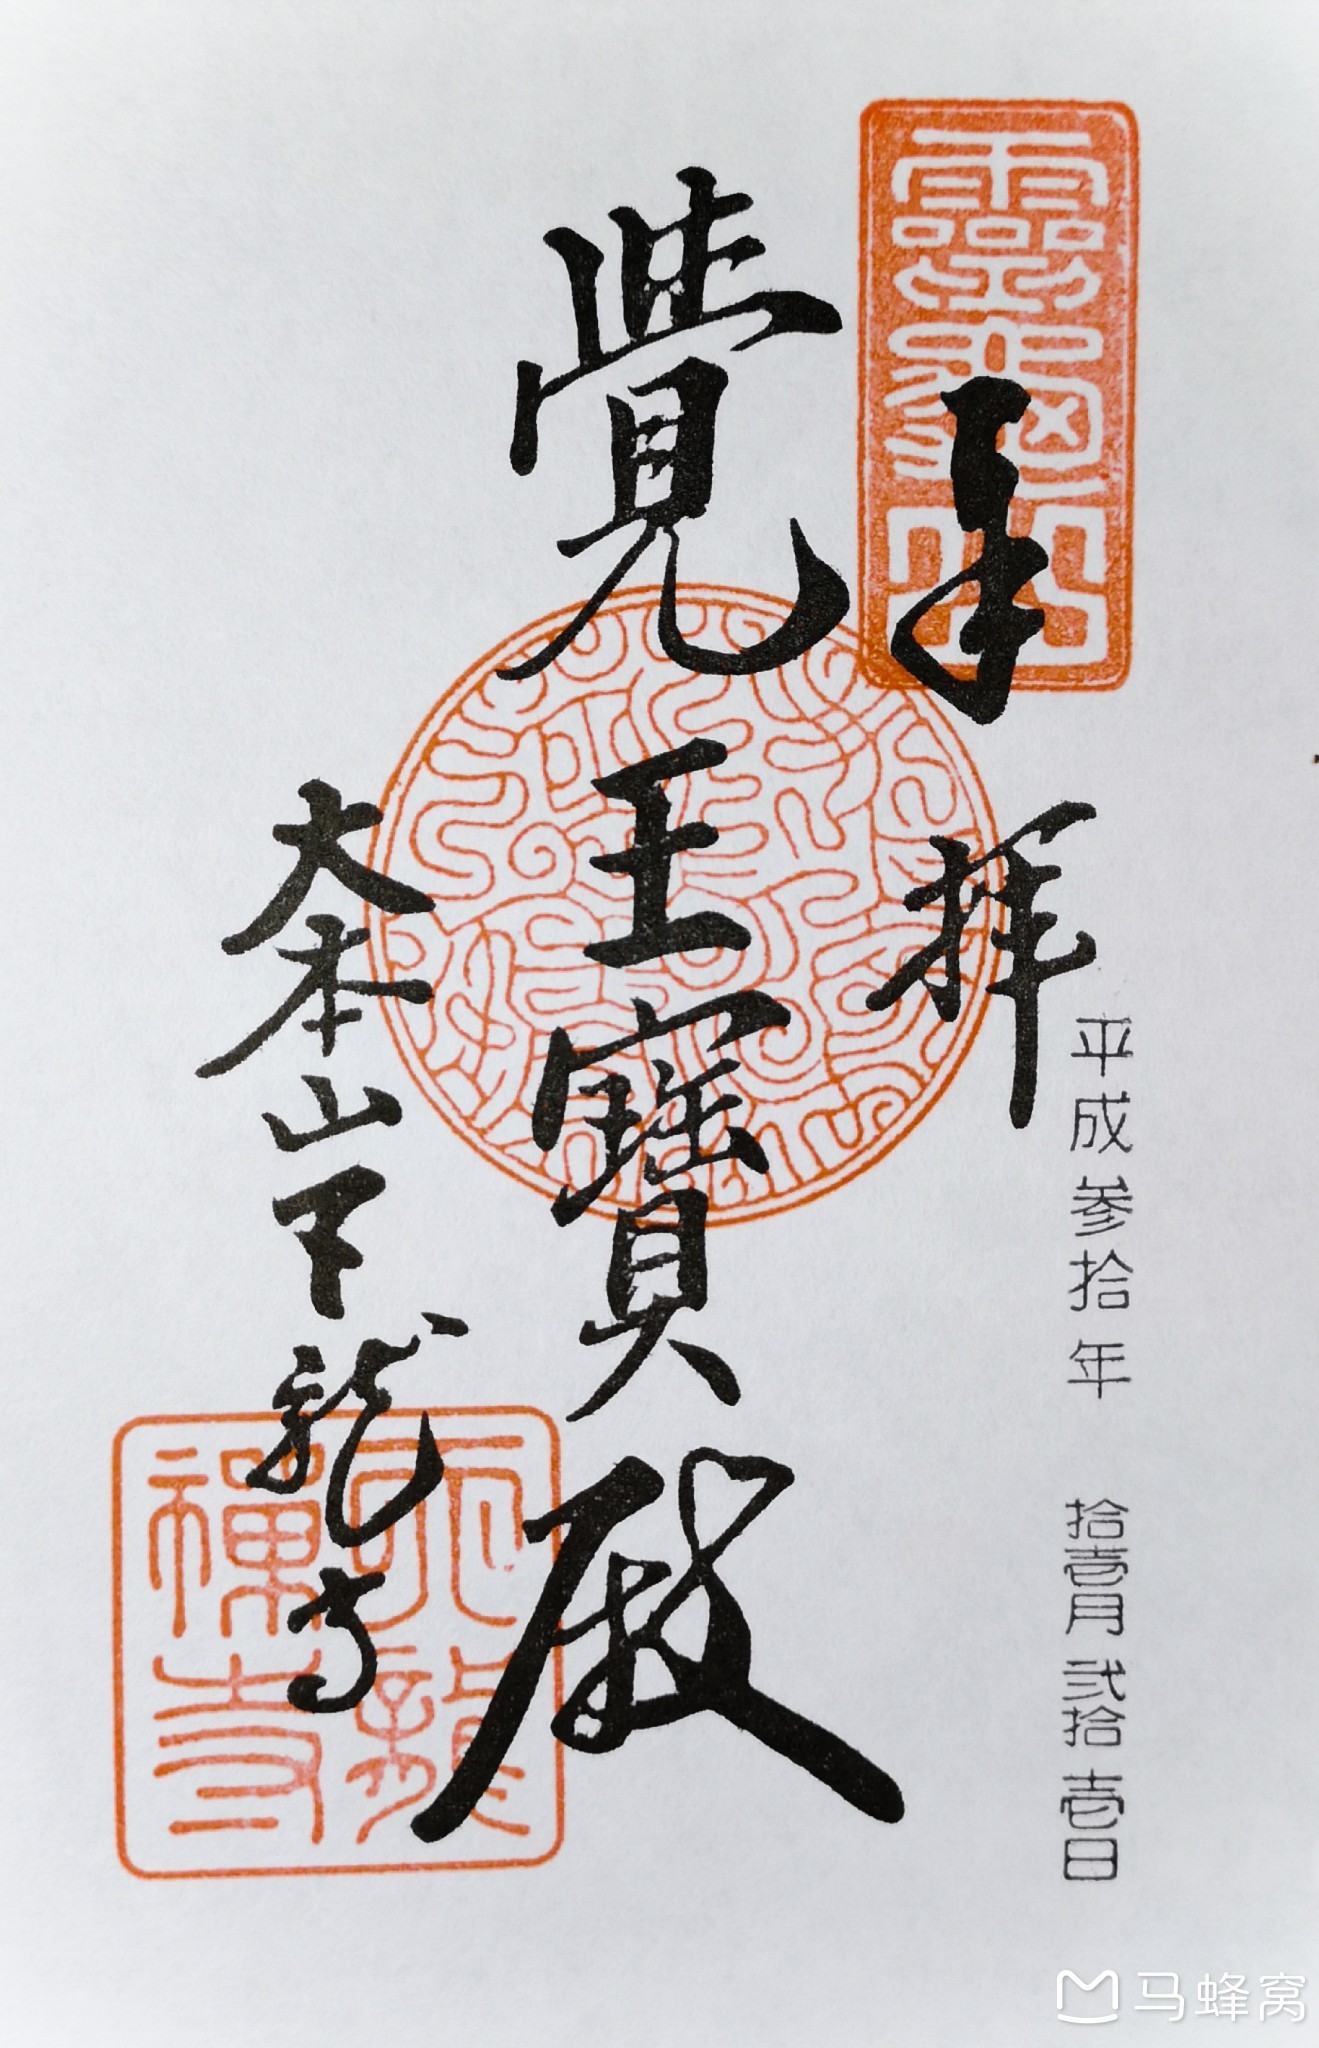 奉拝
平成参拾年 拾壹月弐拾壹日
靈龜山
覺王寶殿
大本山天龍寺
天龍禪寺
马蜂窝